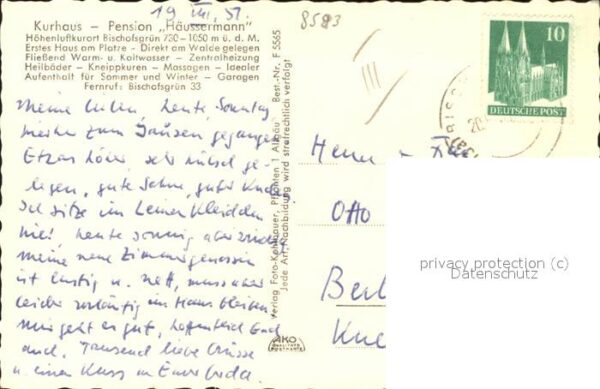 19. VIII. 51.
8583
Kurhaus – Pension „Häussermann"
Höhenluftkurort Bischofsgrün 730 - 1050 m ü. d. M.
Erstes Haus am Platze - Direkt am Walde gelegen
Fließend Warm- u. Kaltwasser - Zentralheizung
Heilbäder - Kneippkuren - Massagen - Idealer
Aufenthalt für Sommer und Winter - Garagen
Fernruf: Bischofsgrün 33
Meine Lieben, heute, Sonntag
zum gegangen
Etwas höher, sehr hübsch ge-
legen, gute Sahne, guter Kuchen
Ich sitze im Leinenkleidchen
hier, heute sonnig aber windig
meine neue Zimmergenossin
ist lustig u. nett, muss aber
leider vorläufig im Haus bleiben
Mir geht es gut, hoffentlich Euch
auch. Tausend liebe Grüsse
u einen Kuss an Euch beide.
Verlag Foto-Kohlbauer, Pfronten 1 Allgäu Best.-Nr. F 5565
Jede Art Nachbildung wird strafrechtlich verfolgt
AKO
10
DEUTSCHE POST
20.
Herrn
Otto
Berl
privacy protection (c)
Datenschutz